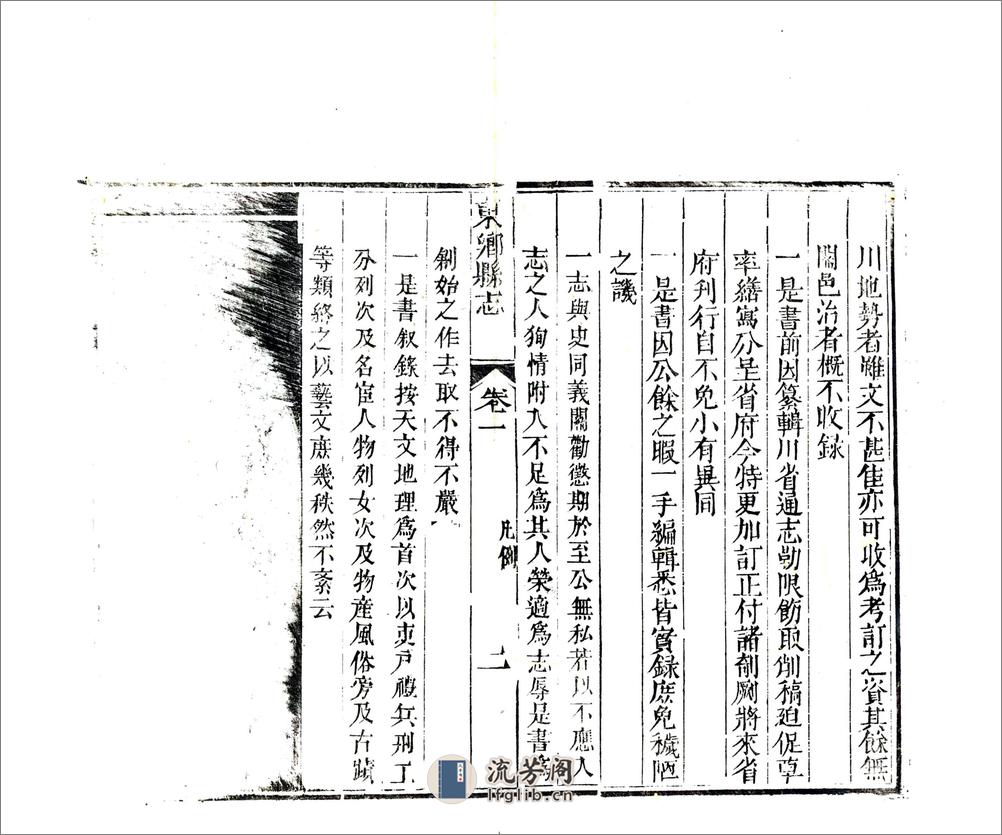 川地勢者雖文不甚佳亦可收爲考訂之資其餘無
關邑治者概不收録
一是書前因纂輯川省通志勒限飭取削稿迫促草
率繕寫分呈省府今特更加訂正付諸剞劂將來省
府刊行自不免小有異同
一是書因公餘之暇一手編輯悉皆實録庶免穢陋
之譏
一志與史同義關勸懲期於至公無私若以不應入
志之人狥情附入不足爲其人榮適爲志辱是書爲
東鄉縣志
卷一
凡例
二
創始之作去取不得不嚴
一是書叙錄按天文地理爲首次以吏戸禮兵刑工
分列次及名宦人物列女次及物產風俗旁及古蹟
等類終之以藝文庶幾秩然不紊云
流芳阁
lfglib.cn